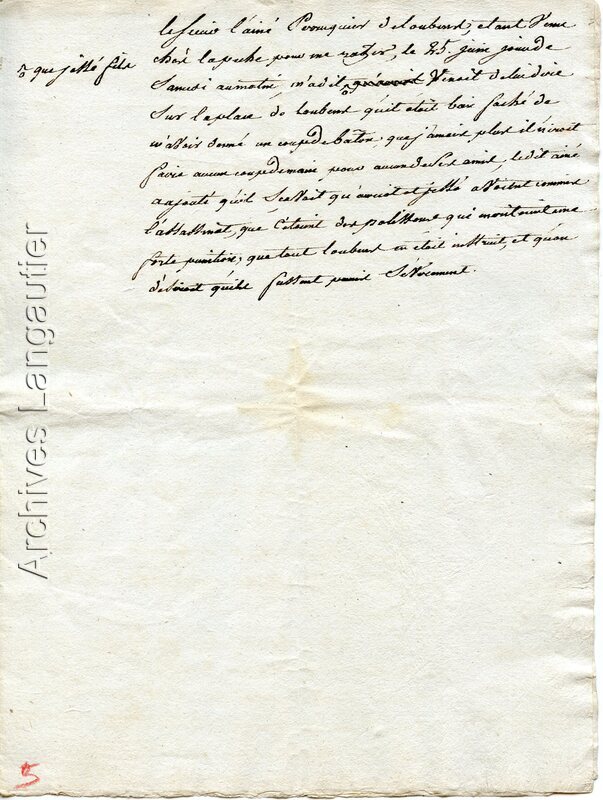 le sieur l'ainé Perruquier de loubens, etant venu
ches lapeche pour me razer, le 25. juin jour de
ก que jetté fils
Samedi au matin m'a dit venoit de lui dire
Sur la place de Loubens qu'il etoit bien faché de
m'avoir donné un coup de baton, que jamais plus il n'iroit
faire aucun coup de main, pour aucun de ses amis, ledit ainé
a ajouté qu'il Scavoit qu' et jetté avoient commis
l'assassinat, que c'etoint des polissons qui meritoint une
forte punition, que tout loubens en étoit instruit, et qu'on
désiroit qu'ils fussent punis Sévérement.
Archives Langautier
5